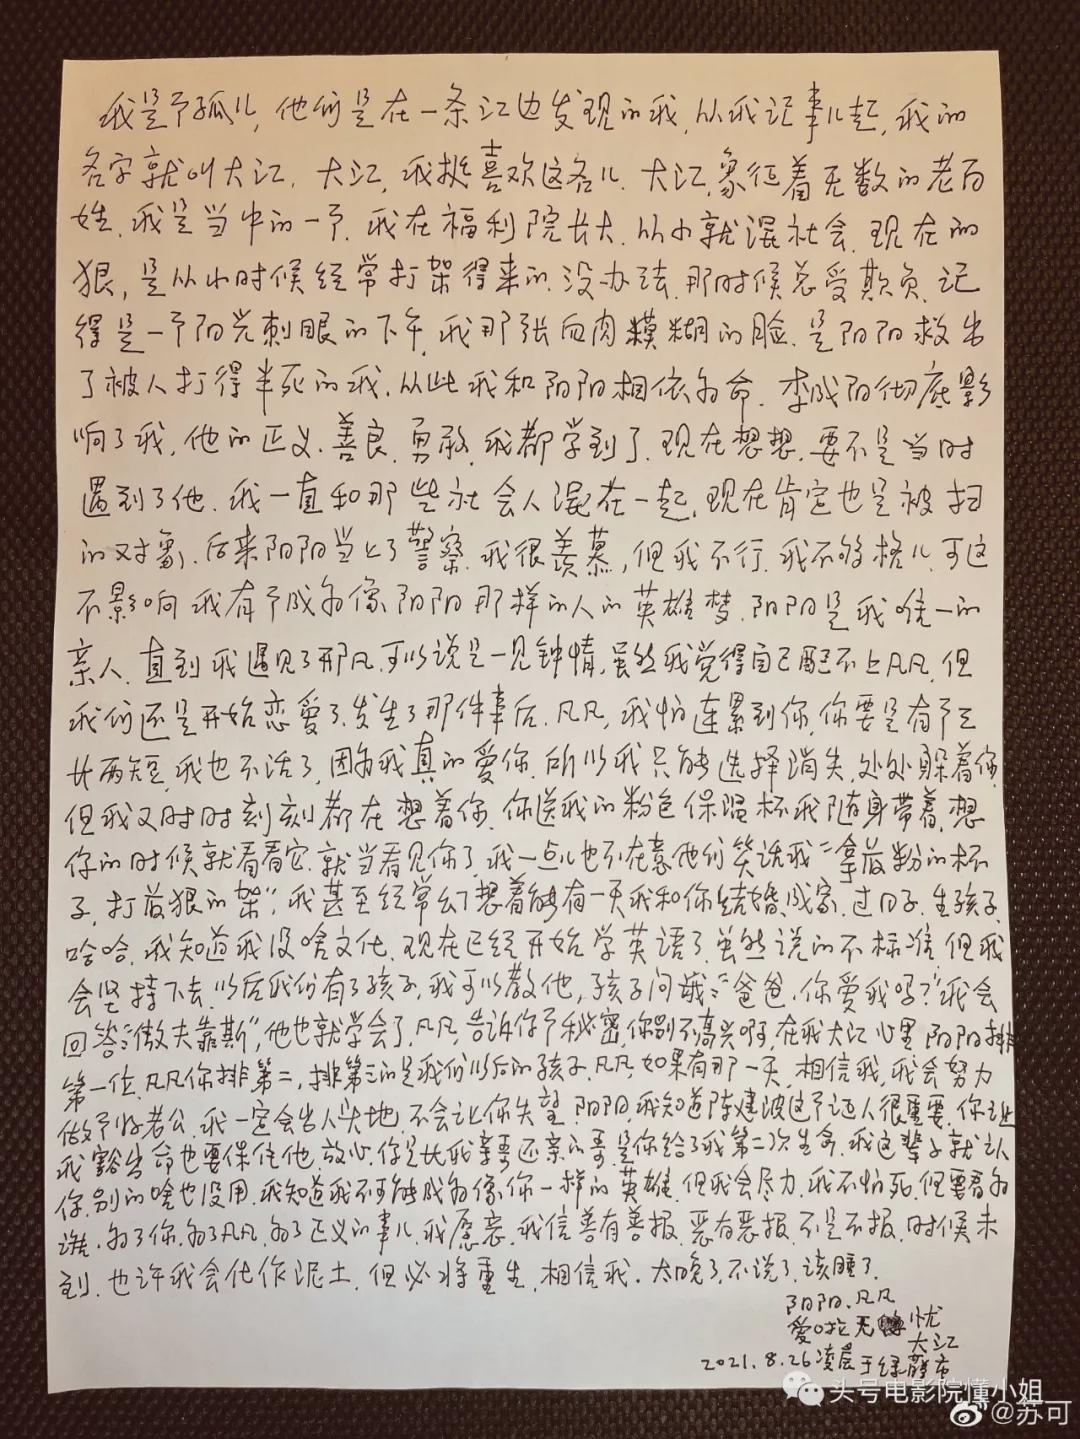 我是个孤儿,他们是在一条江边发现的我,从我记事儿起,我的
名字就叫大江.大江,我挺喜欢这名儿.大江,象征着无数的老百
姓.我是当中的一个.我在福利院长大.从小就混社会.现在的
狠,是从小时候经常打架得来的.没办法.那时候总受欺负.记
得是一个阳光刺眼的下午,我那张血肉模糊的脸.是阳阳救出
了被人打得半死的我.从此我和阳阳相依为命.李成阳彻底影
响了我,他的正义.善良.勇敢.我都学到了.现在想想.要不是当时
遇到了他.我一直和那些社会人混在一起,现在肯定也是被扫
的对象.后来阳阳当上了警察.我很羡慕,但我不行.我不够格儿.可这
不影响我有个成为像阳阳那样的人的英雄梦.阳阳是我唯一的
亲人.直到我遇见了邢凡.可以说是一见钟情.虽然我觉得自己配不上凡凡,但
我们还是开始恋爱了.发生了那件事后.凡凡,我怕连累到你,你要是有个三
长两短.我也不活了,因为我真的爱你.所以我只能选择消失,处处躲着你
但我又时时刻刻都在想着你.你送我的粉色保温杯我随身带着,想
你的时候就看看它.就当看见你了.我一点儿也不在意他们笑话我:"拿最粉的杯
子,打最狠的架".我甚至经常幻想着能有一天我和你结婚.成家.过日子.生孩子.
哈哈.我知道我没啥文化.现在已经开始学英语了.虽然说的不标准.但我
会坚持下去.以后我们有了孩子,我可以教他,孩子问我:"爸爸.你爱我吗?"我会
回答:"傲夫靠斯",他也就学会了.凡凡.告诉你个秘密.你别不高兴啊,在我大江心里.阳阳排
第一位.凡凡你排第二,排第三的是我们以后的孩子.凡凡,如果有那一天,相信我,我会努力
做个好老公.我一定会出人头地.不会让你失望.阳阳,我知道陈建波这个证人很重要.你让
我豁出命也要保住他.放心.你是比我亲哥还亲的哥.是你给了我第二次生命.我这辈子就认
你.别的啥也没用.我知道我不可能成为像你一样的英雄.但我会尽力.我不怕死.但要看为
谁.为了你.为了凡凡.为了正义的事儿.我愿意.我信善有善报.恶有恶报.不是不报.时候未
到.也许我会化作泥土.但必将重生.相信我.太晚了.不说了.该睡了.
阳阳.凡凡
爱啦无忧
大江
2021.8.26凌晨于绿藤市
头号电影院懂小姐
@苏可